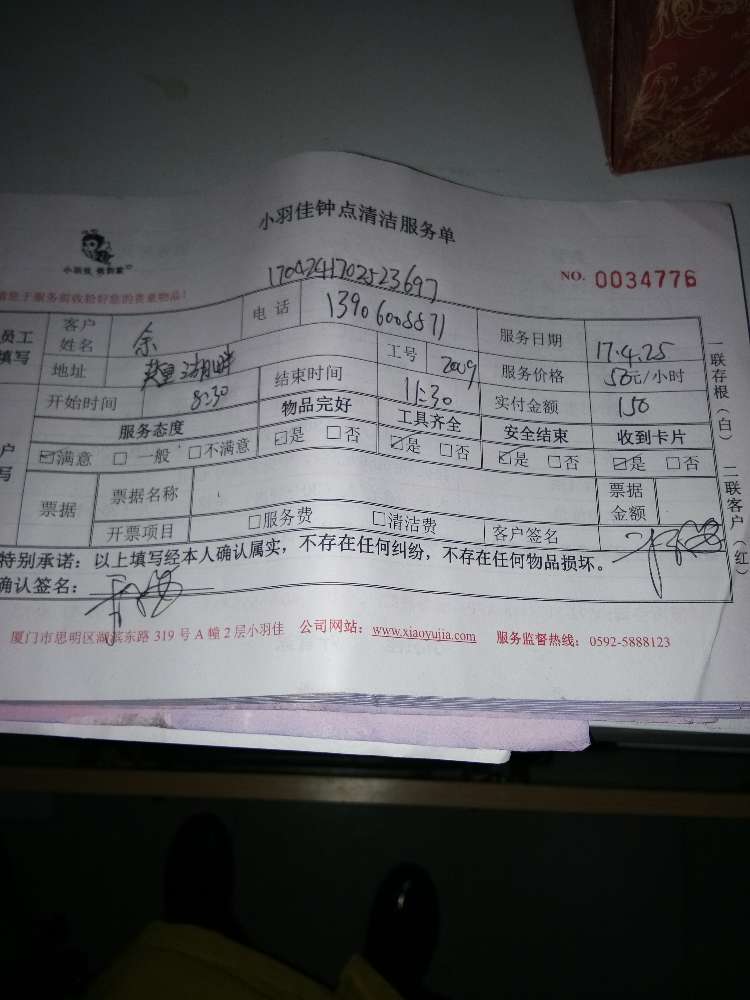 小羽佳钟点清洁服务单
小羽佳 教到家
NO. 0034776
170424170252369
请您于服务前收拾好您的贵重物品!
员工填写 客户姓名 余 电话 13906008871 服务日期 17.4.25
地址 湖畔 工号 2009 服务价格 50元/小时
开始时间 8:30 结束时间 11:30 实付金额 150
服务态度 物品完好 工具齐全 安全结束 收到卡片
☑满意 □一般 □不满意 ☑是 □否 ☑是 □否 ☑是 □否 ☑是 □否
户写
票据 票据名称 票据金额
开票项目 □服务费 □清洁费 客户签名
特别承诺：以上填写经本人确认属实，不存在任何纠纷，不存在任何物品损坏。
确认签名：
厦门市思明区湖滨东路 319 号 A 幢 2 层小羽佳 公司网站：www.xiaoyujia.com 服务监督热线：0592-5888123
一联存根（白） 二联客户（红）